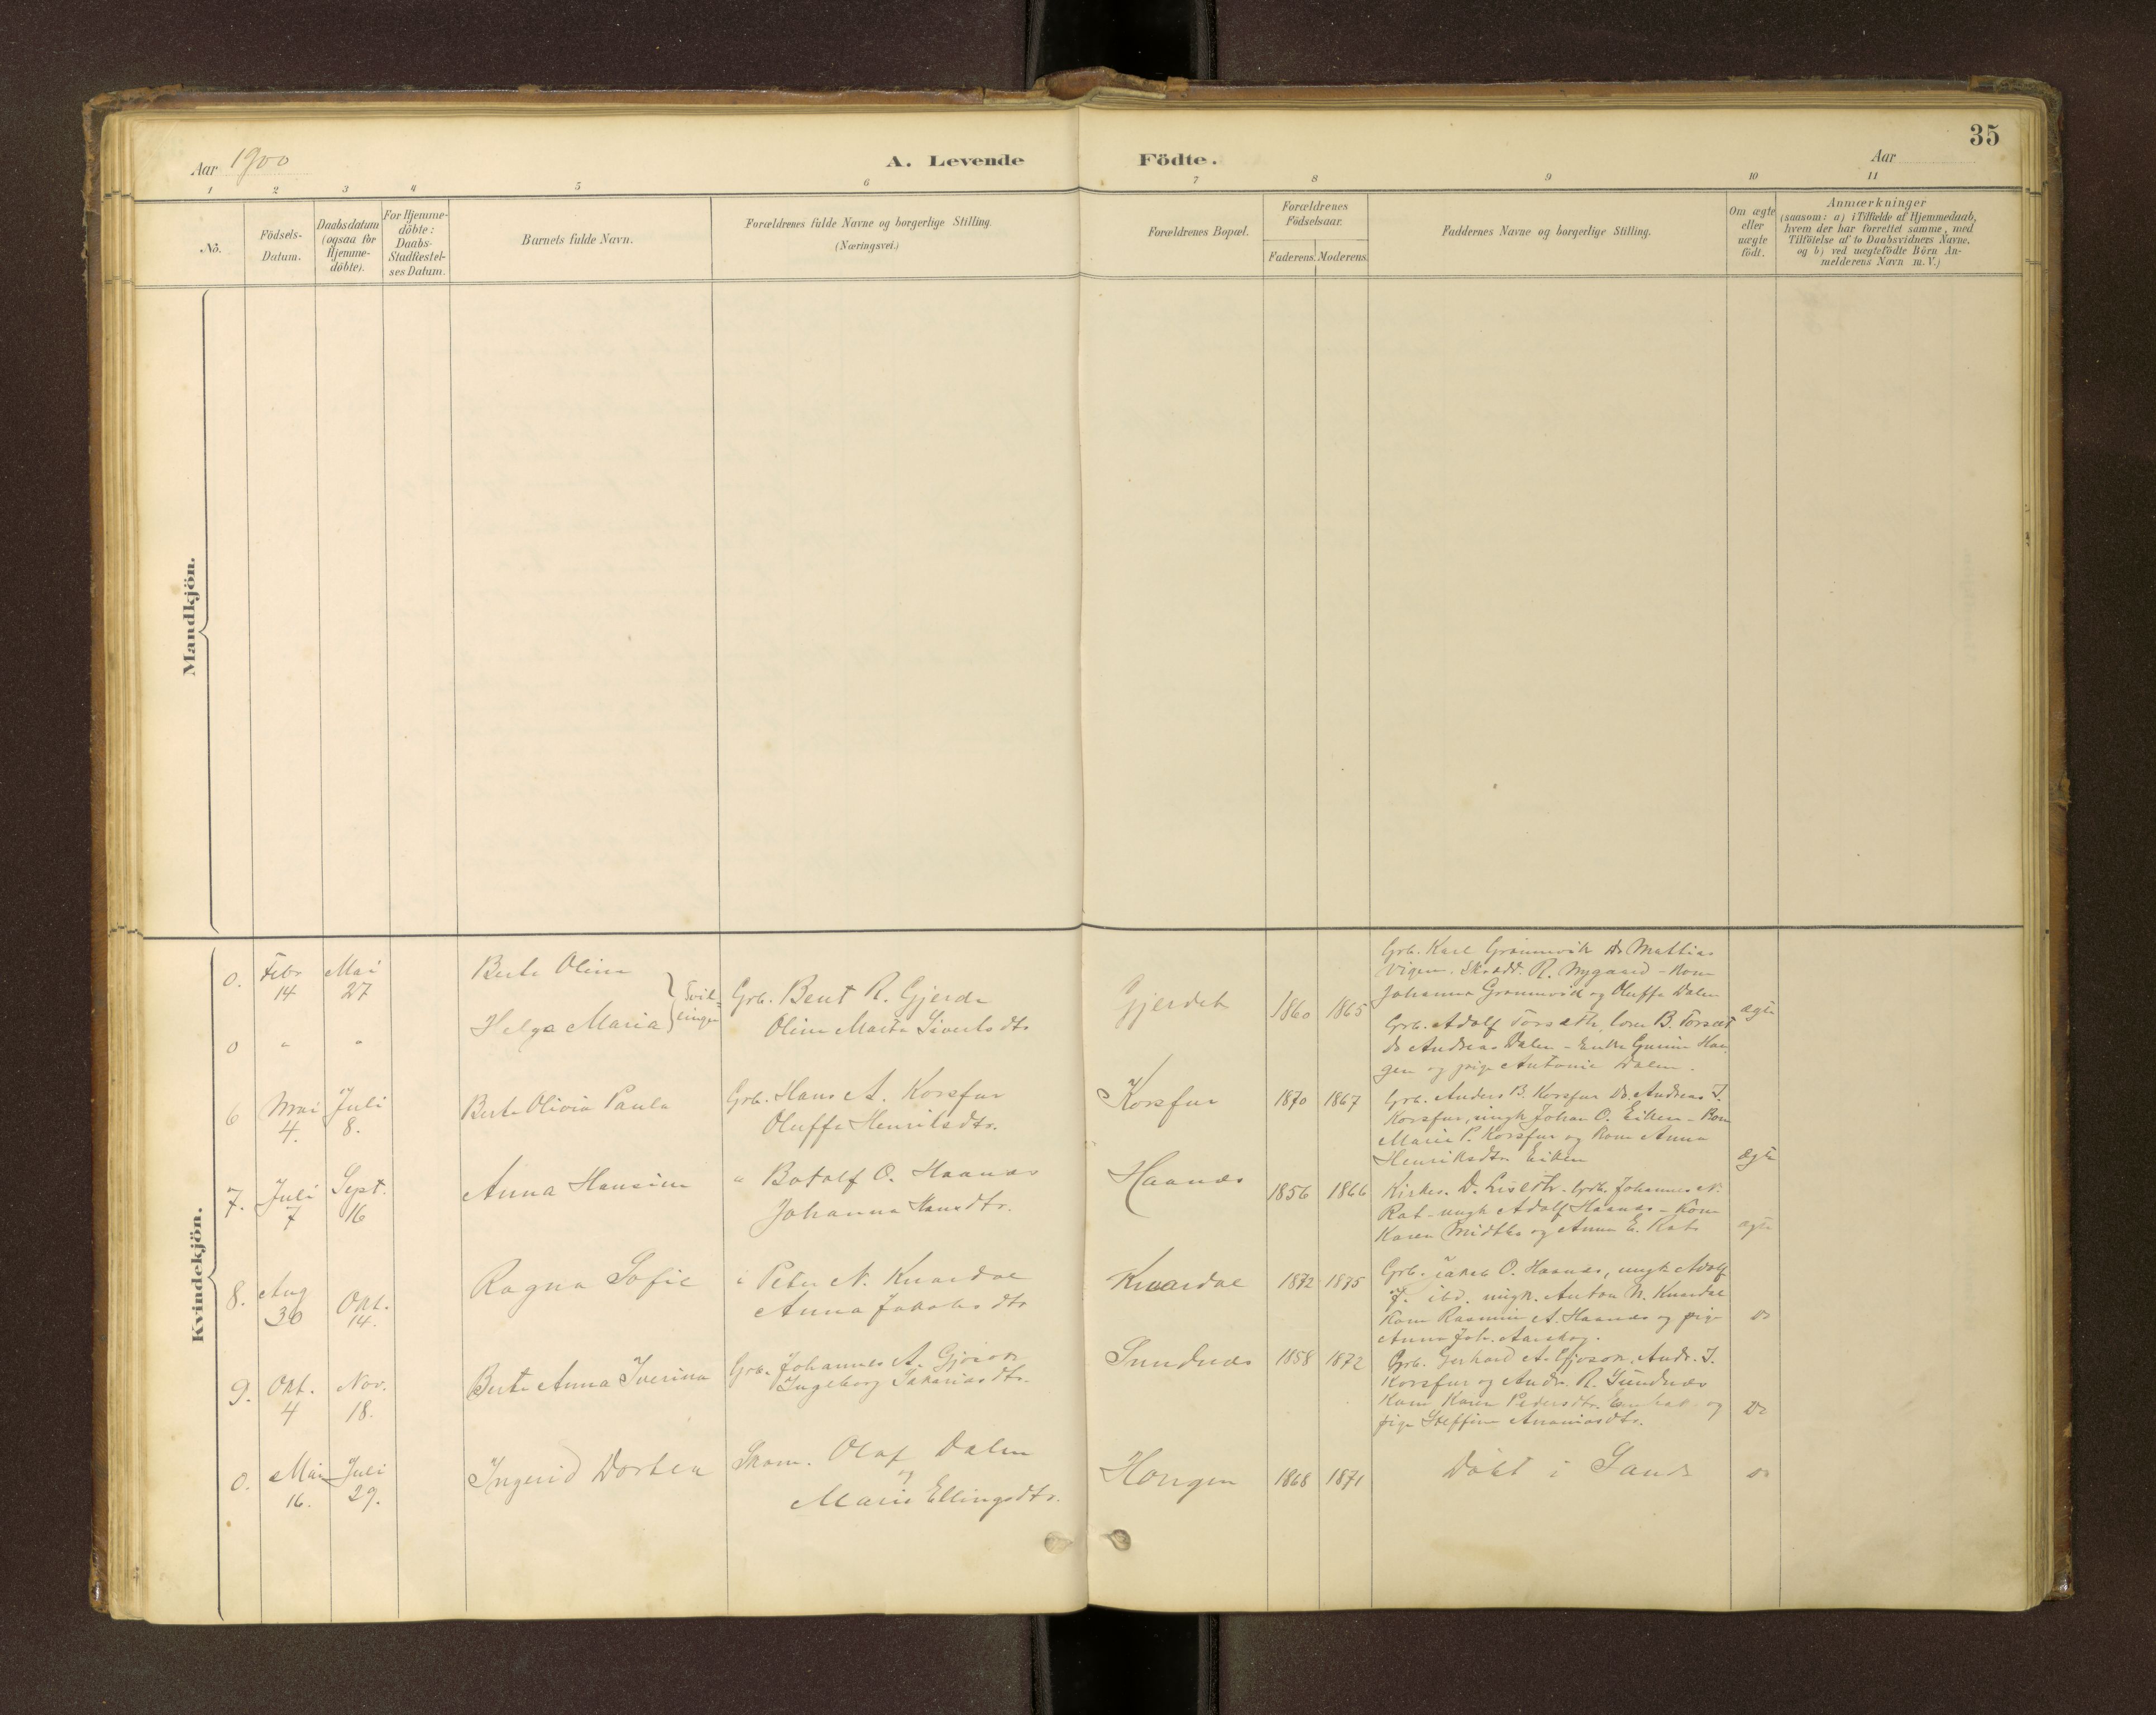 35
Aar 1900 A. Levende Födte. Aar
1 2 3 4 5 6 7 8 9 10 11
No. Födsels-Datum. Daabsdatum (ogsaa for Hjemme-döbte). For Hjemme-döbte: Daabs-Stadfæstel-ses Datum. Barnets fulde Navn. Forældrenes fulde Navne og borgerlige Stilling. (Næringsvei.) Forældrenes Bopæl. Forældrenes Födselsaar. Faderens. Moderens. Faddernes Navne og borgerlige Stilling. Om ægte eller uægte födt. Anmærkninger (saasom: a) i Tilfælde af Hjemmedaab, hvem der har forrettet samme, med Tilföielse af to Daabsvidners Navne, og b) ved uægtefödte Börn An-melderens Navn m. V.)
Mandkjön.
Kvindekjön.
0. Febr 14 Mai 27 Berte Oline
0 " " Helga Maria } Tvil-linger
Grb. Bent R. Gjerde
Oline Marta Siverts dtr
Gjerdet 1860 1865
Grb. Karl Grønnevik Do Mattias
Vigen. Sk.add. R. Nygaard - Kone
Johanna Grønnevik og Oluffa Dalen
Grb. Adolf Torsæth, Lom B. Torsæt
do Andreas Dalen - Enke Gurine Hau
gen og pige Antonie Dalen.
ægte
6 Mai 4. Juli 8. Berte Olivia Paula
Grb. Hans A. Korsfur
Oluffe Henriksdtr.
Korsfur 1870 1867
Grb. Anders B. Korsfur Do. Andreas I.
Korsfur, ungk Johan O. Eiken - Kone
Marie P. Korsfur og Kone Anna
Henriksdtr Eiken
ægte
7. Juli 7 Sept. 16 Anna Hansine
" Botolf O. Haanes
Johanna Hansdtr.
Haanes 1856 1866
Kirkes. D. Liseth. Grb. Johannes N.
Rat - ungk Adolf Haanes - Kone
Karen Midtbø og Anna E. Rat
ægte
8. Aug 30 Okt. 14. Ragna Sofie
" Peter N. Kvardal
Anna Jakobs dtr
Kvardal 1872 1875
Grb. Jakob O. Haanes, ungk Adolf
J. ibd. ungk. Anton N. Kvardal
Kone Rasmine A. Haanes og pige
Anna Joh. Aarskog.
Do
9. Okt. 4 Nov. 18. Berte Anna Iverina
Grb. Johannes A. Gjøson
Ingeborg Sakariasdtr.
Sundnes 1858 1872
Grb. Gerhard A. Gjøson, Andr. I.
Korsfur og Andr. R. Sundnes
Kone Karen Pedersdtr. og
pige Steffine Ananiasdtr.
Do
0. Mai 16. Juli 29. Ingerid Dortea
Skom. Olaf Dalen
og
Marie Ellingsdtr.
Hougen 1868 1871
Döbt i Sande
Do